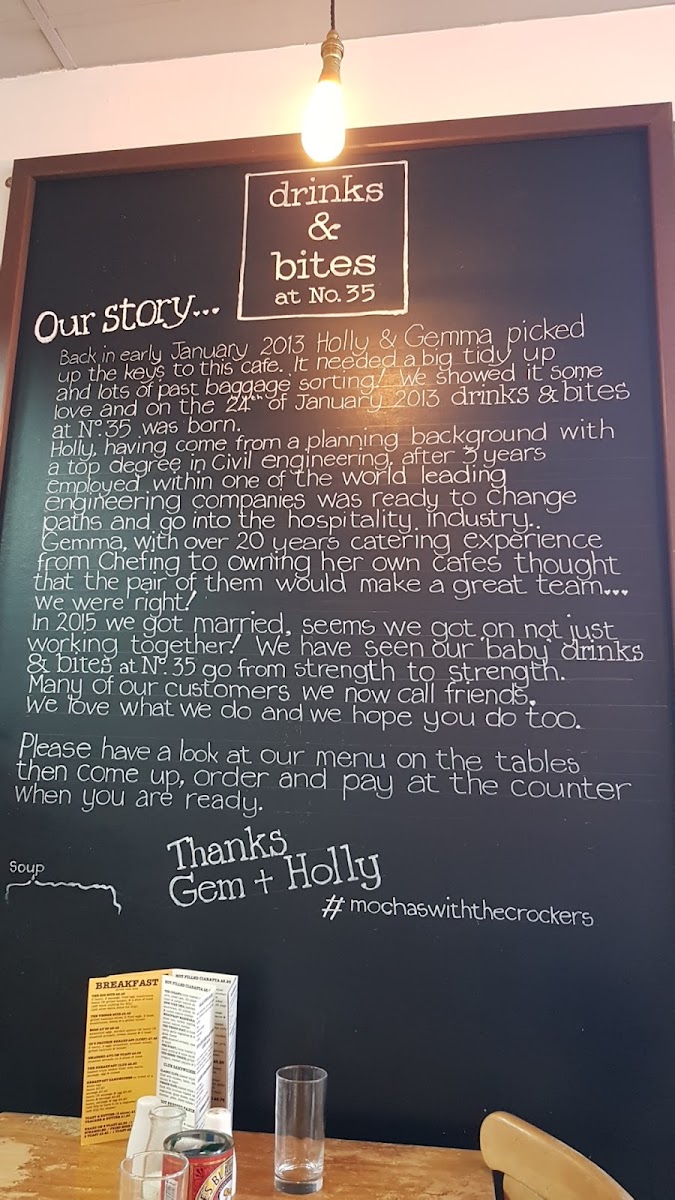 drinks
&
bites
at No. 35
Our story...
Back in early January 2013 Holly & Gemma picked
up the keys to this cafe. It needed a big tidy up
and lots of past baggage sorting! We showed it some
love and on the 24th of January 2013 drinks & bites
at No. 35 was born.
Holly, having come from a planning background with
a top degree in Civil engineering, after 3 years
employed within one of the world leading
engineering companies was ready to change
paths and go into the hospitality industry..
Gemma, with over 20 years catering experience
from Chefing to owning her own cafes thought
that the pair of them would make a great team...
we were right!
In 2015 we got married, seems we got on not just
working together! We have seen our 'baby' drinks
& bites at No. 35 go from strength to strength.
Many of our customers we now call friends.
We love what we do and we hope you do too.
Please have a look at our menu on the tables
then come up, order and pay at the counter
when you are ready.
Thanks
Gem + Holly
#mochaswiththecrockers
Soup
BREAKFAST